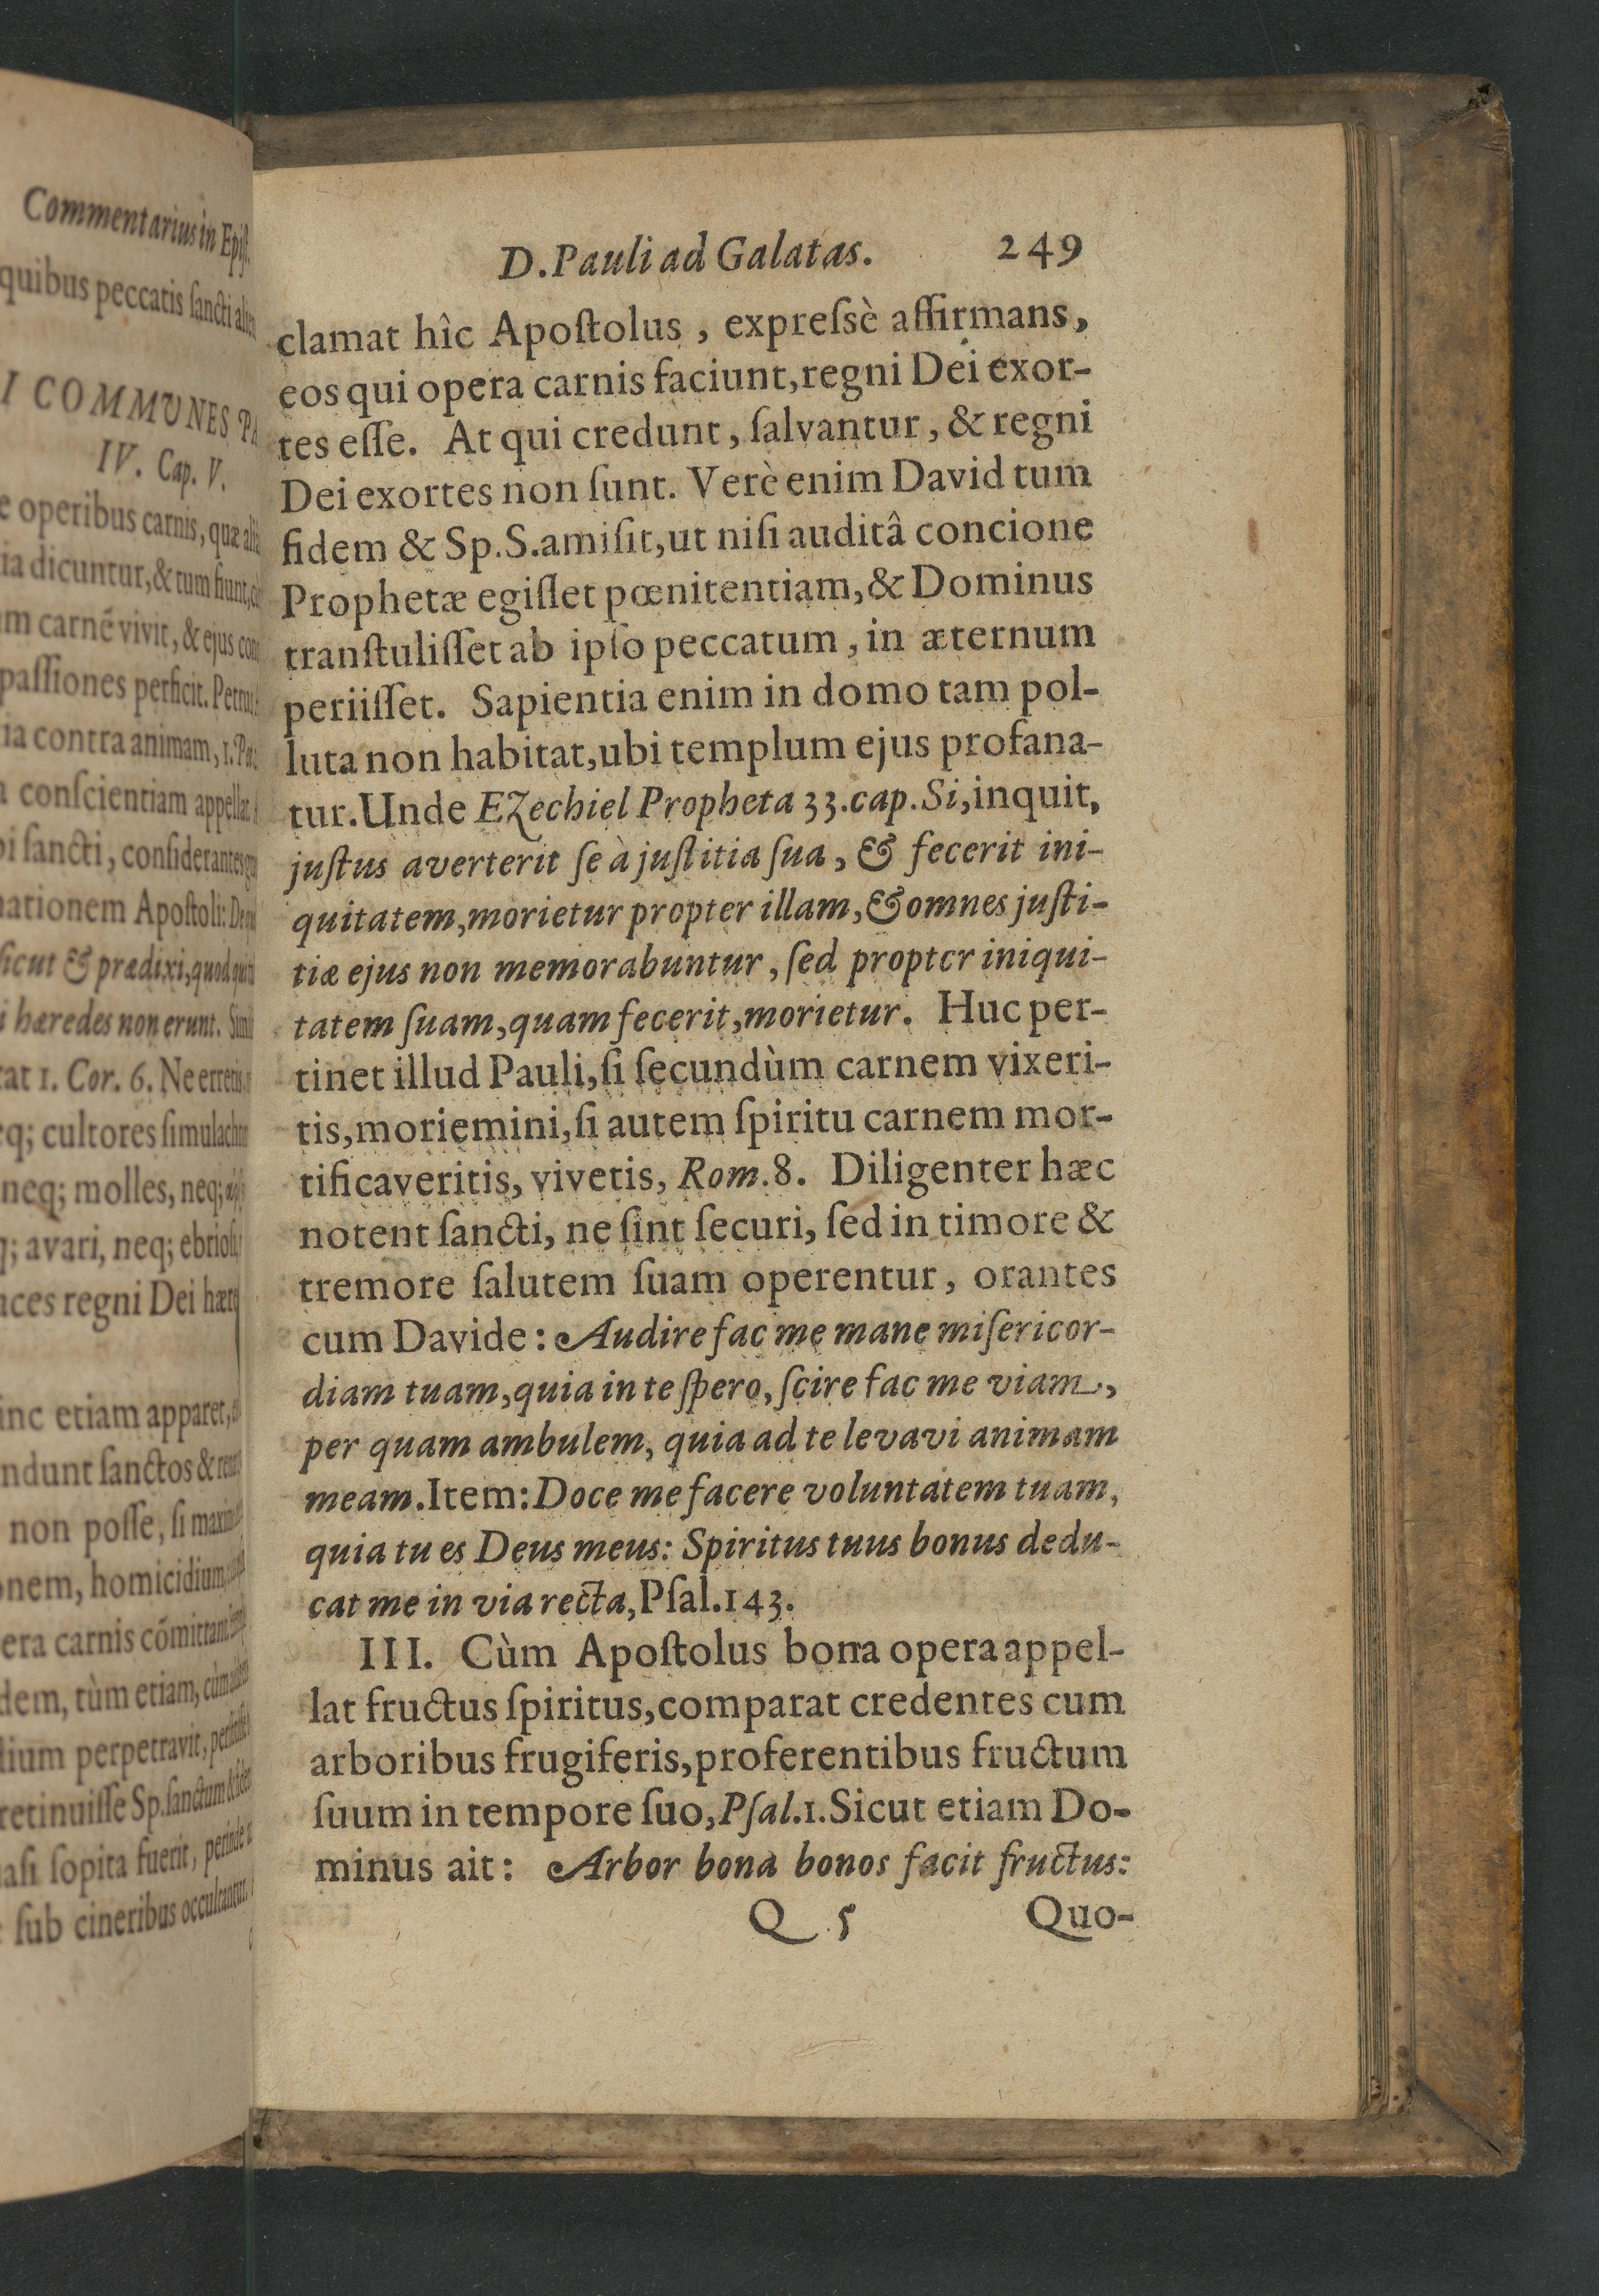 Commentarius in Epist.
quibus peccatis ſancti
I COMMUNES
IV. Cap. V.
operibus carnis, quæ
dicuntur, & tum fiunt,
carnē vivit, & ejus
paſſiones perficit.
contra animam, 1.
conſcientiam
ſancti,
Apoſtoli:
ſicut & prædixi, quod
hæredes non erunt.
1. Cor. 6. Ne
cultores
neq; molles, neq;
avari, neq;
regni Dei
etiam apparet,
ſanctos &
non poſſe, ſi
homicidium
carnis
tùm etiam,
perpetravit,
Sp. ſanctum
ſopita fuerit,
ſub cineribus
D. Pauli ad Galatas. 249
clamat hîc Apoſtolus, expreſsè affirmans,
eos qui opera carnis faciunt, regni Dei exor-
tes eſſe. At qui credunt, ſalvantur, & regni
Dei exortes non ſunt. Verè enim David tum
fidem & Sp. S. amiſit, ut niſi auditâ concione
Prophetæ egiſſet pœnitentiam, & Dominus
tranſtuliſſet ab ipſo peccatum, in æternum
periiſſet. Sapientia enim in domo tam pol-
luta non habitat, ubi templum ejus profana-
tur. Unde Ezechiel Propheta 33. cap. Si, inquit,
juſtus averterit ſe à juſtitia ſua, & fecerit ini-
quitatem, morietur propter illam, & omnes juſti-
tiæ ejus non memorabuntur, ſed propter iniqui-
tatem ſuam, quam fecerit, morietur. Huc per-
tinet illud Pauli, ſi ſecundùm carnem vixeri-
tis, moriemini, ſi autem ſpiritu carnem mor-
tificaveritis, vivetis, Rom. 8. Diligenter hæc
notent ſancti, ne ſint ſecuri, ſed in timore &
tremore ſalutem ſuam operentur, orantes
cum Davide: Audire fac me mane miſericor-
diam tuam, quia in te ſpero, ſcire fac me viam,
per quam ambulem, quia ad te levavi animam
meam. Item: Doce me facere voluntatem tuam,
quia tu es Deus meus: Spiritus tuus bonus dedu-
cat me in via recta, Pſal. 143.
III. Cùm Apoſtolus bona opera appel-
lat fructus ſpiritus, comparat credentes cum
arboribus frugiferis, proferentibus fructum
ſuum in tempore ſuo, Pſal. 1. Sicut etiam Do-
minus ait: Arbor bona bonos facit fructus:
Q 5 Quo-